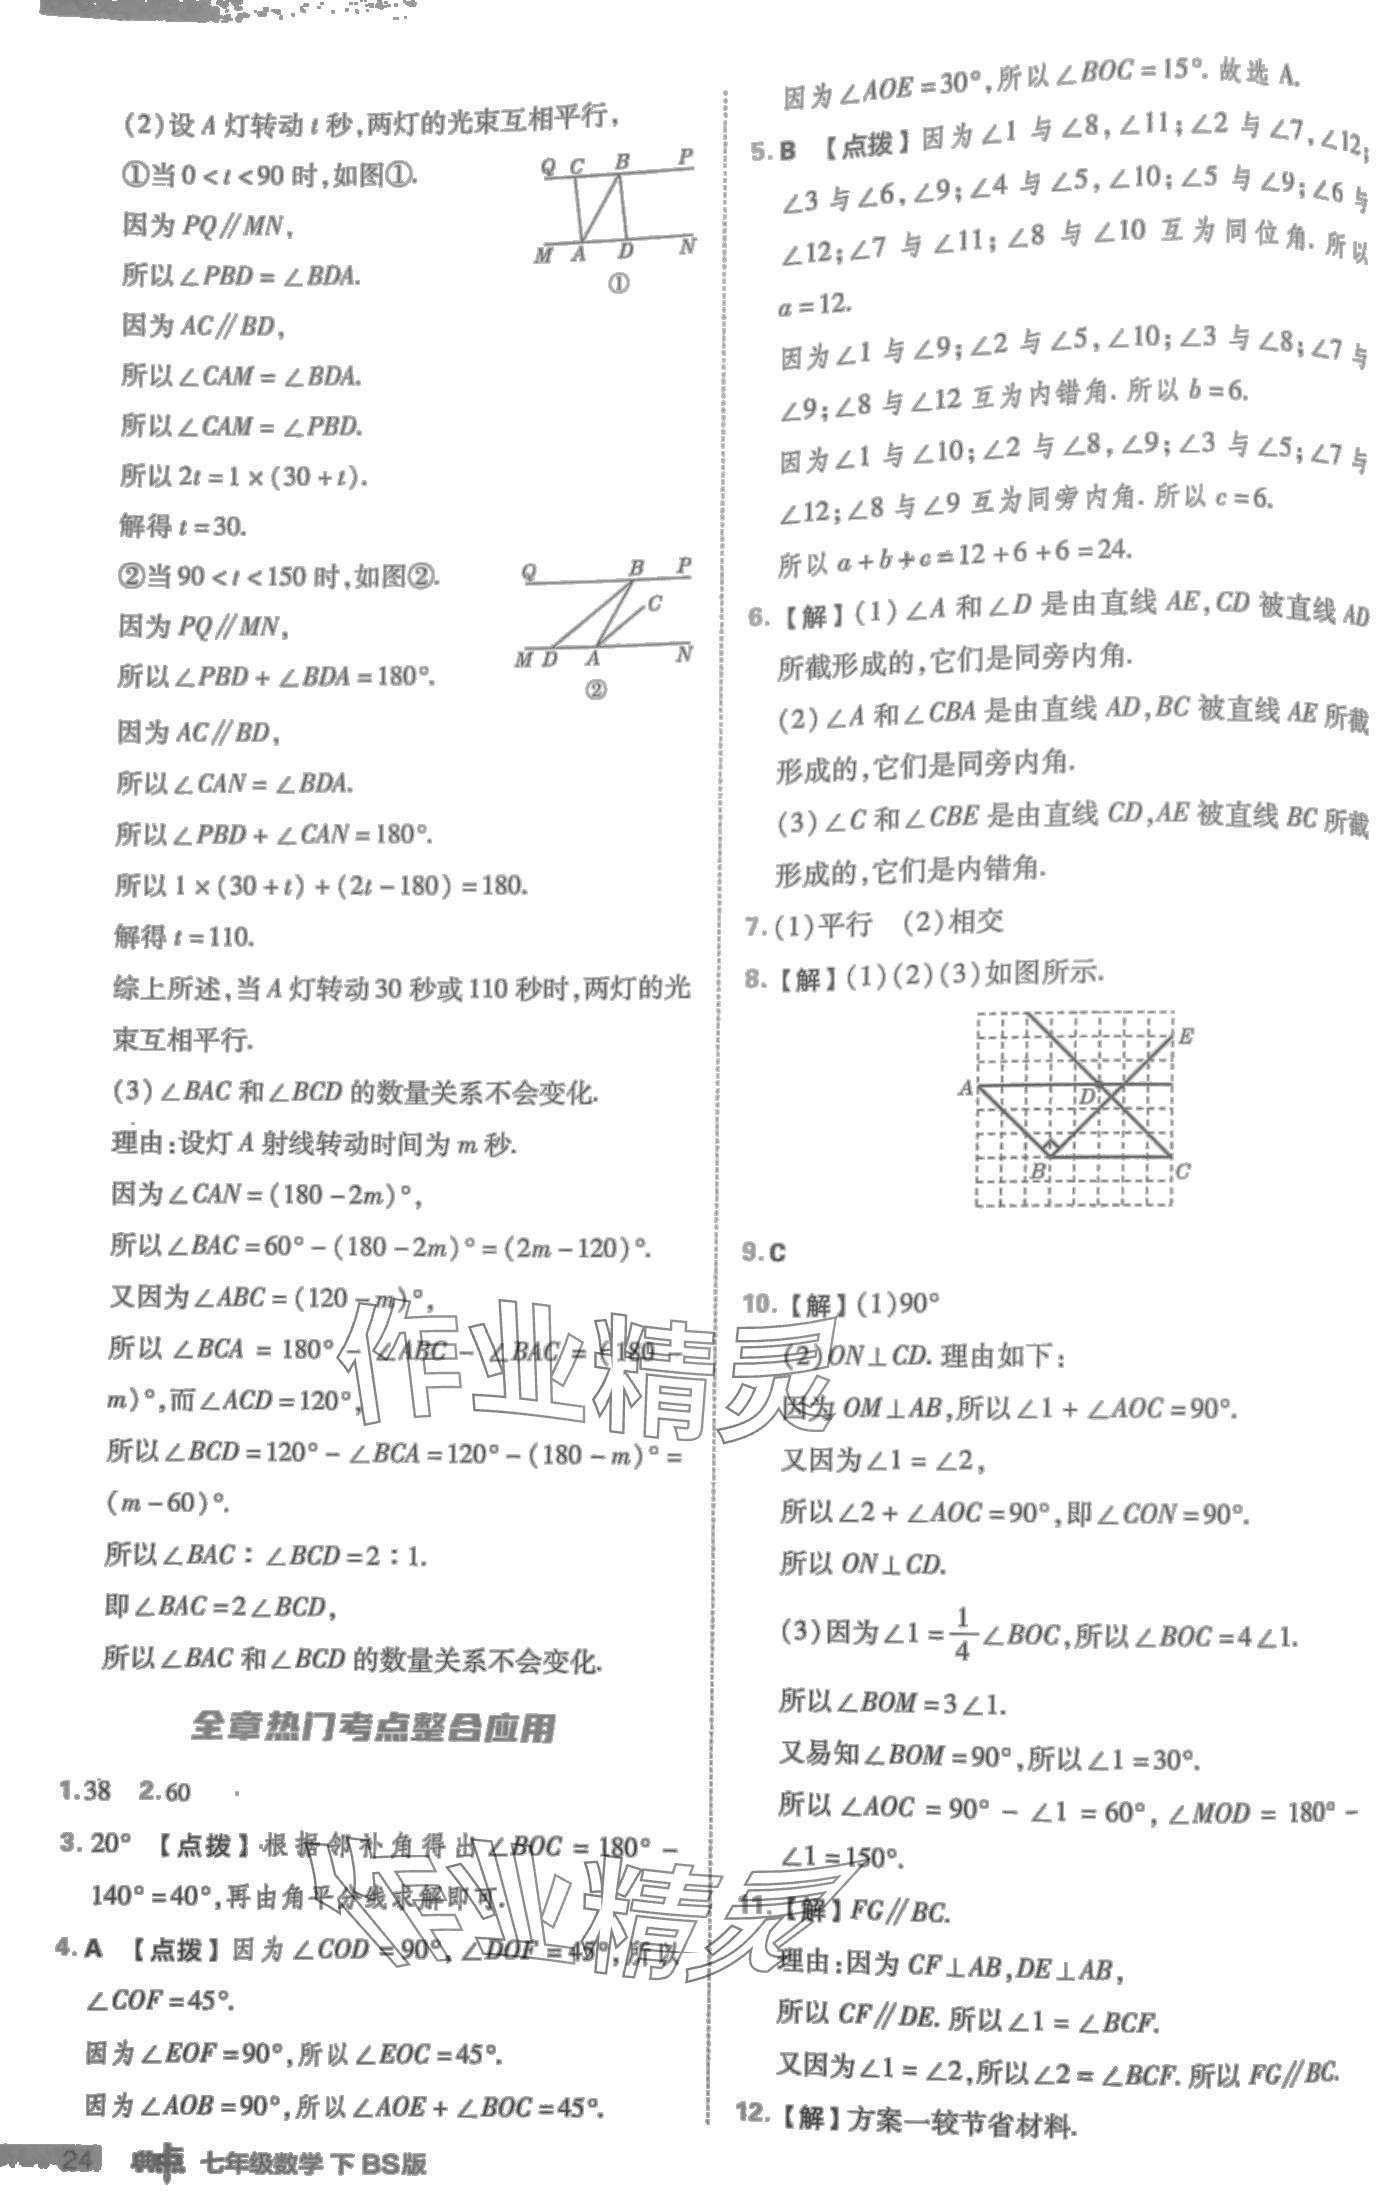 (2)设 A 灯转动 t 秒,两灯的光束互相平行,
①当 0<t<90 时,如图①.
因为 PQ∥MN,
所以∠PBD=∠BDA.
因为 AC∥BD,
所以∠CAM=∠BDA.
所以∠CAM=∠PBD.
所以 2t=1×(30+t).
解得 t=30.
Q C B P
M A D N
①
②当 90<t<150 时,如图②.
因为 PQ∥MN,
所以∠PBD+∠BDA=180°.
因为 AC∥BD,
所以∠CAN=∠BDA.
所以∠PBD+∠CAN=180°.
所以 1×(30+t)+(2t-180)=180.
解得 t=110.
Q B P
C
M D A N
②
综上所述,当 A 灯转动 30 秒或 110 秒时,两灯的光
束互相平行.
(3)∠BAC 和∠BCD 的数量关系不会变化.
理由:设灯 A 射线转动时间为 m 秒.
因为∠CAN=(180-2m)°,
所以∠BAC=60°-(180-2m)°=(2m-120)°.
又因为∠ABC=(120-m)°,
所以 ∠BCA = 180° - ∠ABC - ∠BAC = (180 -
m)°,而∠ACD=120°,
所以∠BCD=120°-∠BCA=120°-(180-m)°=
(m-60)°.
所以∠BAC∶∠BCD=2∶1.
即∠BAC=2∠BCD,
所以∠BAC 和∠BCD 的数量关系不会变化.
全章热门考点整合应用
1. 38 2. 60
3. 20° 【点拨】根据邻补角得出∠BOC = 180° -
140°=40°,再由角平分线求解即可.
4. A 【点拨】因为∠COD=90°,∠DOF=45°,所以
∠COF=45°.
因为∠EOF=90°,所以∠EOC=45°.
因为∠AOB=90°,所以∠AOE+∠BOC=45°.
24 典中点 七年级数学 下 BS版
因为∠AOE=30°,所以∠BOC=15°. 故选 A.
5. B 【点拨】因为∠1 与∠8,∠11;∠2 与∠7,∠12;
∠3 与∠6,∠9;∠4 与∠5,∠10;∠5 与∠9;∠6 与
∠12;∠7 与∠11;∠8 与∠10 互为同位角. 所以
a=12.
因为∠1 与∠9;∠2 与∠5,∠10;∠3 与∠8;∠7 与
∠9;∠8 与∠12 互为内错角. 所以 b=6.
因为∠1 与∠10;∠2 与∠8,∠9;∠3 与∠5;∠7 与
∠12;∠8 与∠9 互为同旁内角. 所以 c=6.
所以 a+b+c=12+6+6=24.
6. 【解】(1)∠A 和∠D 是由直线 AE,CD 被直线 AD
所截形成的,它们是同旁内角.
(2)∠A 和∠CBA 是由直线 AD,BC 被直线 AE 所截
形成的,它们是同旁内角.
(3)∠C 和∠CBE 是由直线 CD,AE 被直线 BC 所截
形成的,它们是内错角.
7. (1)平行 (2)相交
8. 【解】(1)(2)(3)如图所示.
E
A D
B C
9. C
10. 【解】(1)90°
(2)ON⊥CD. 理由如下:
因为 OM⊥AB,所以∠1+∠AOC=90°.
又因为∠1=∠2,
所以∠2+∠AOC=90°,即∠CON=90°.
所以 ON⊥CD.
(3)因为∠1=1/4∠BOC,所以∠BOC=4∠1.
所以∠BOM=3∠1.
又易知∠BOM=90°,所以∠1=30°.
所以 ∠AOC = 90° - ∠1 = 60°, ∠MOD = 180° -
∠1=150°.
11. 【解】FG∥BC.
理由:因为 CF⊥AB,DE⊥AB,
所以 CF∥DE. 所以∠1=∠BCF.
又因为∠1=∠2,所以∠2=∠BCF. 所以 FG∥BC.
12. 【解】方案一较节省材料.
作业精灵
作业精灵